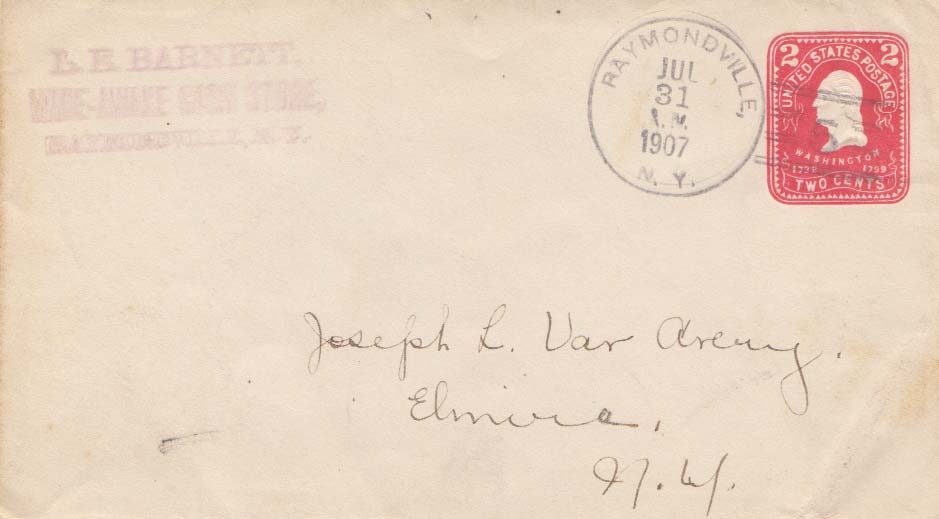 L. E. BARNETT.
WIDE-AWAKE CASH STORE,
RAYMONDVILLE, N. Y.
RAYMONDVILLE,
JUL
31
A.M.
1907
N. Y.
2 2
UNITED STATES POSTAGE
WASHINGTON
1799
TWO CENTS
Joseph L. Van
Elmira,
N. Y.